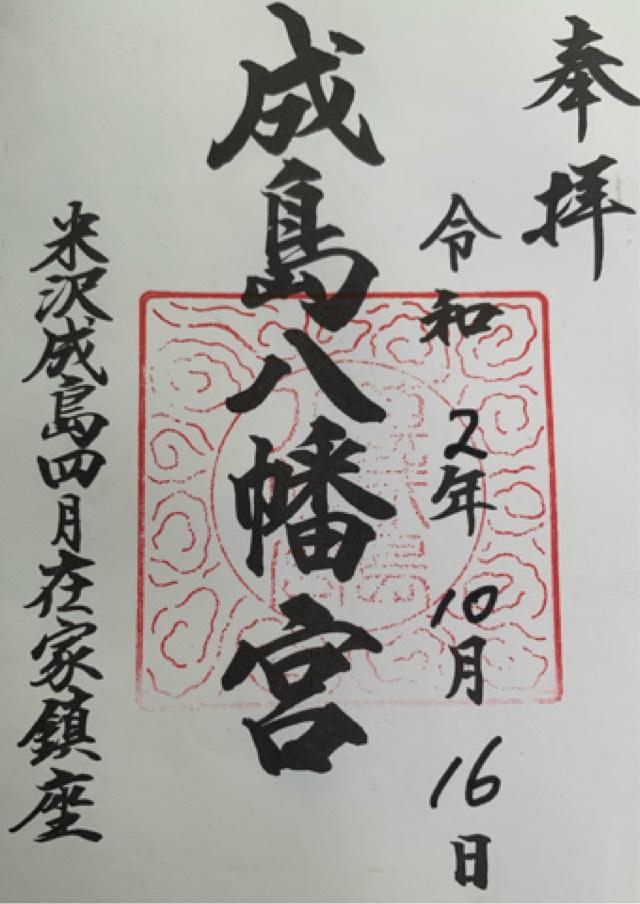 奉拝
令和2年10月16日
成島八幡宮
米沢成島四月在家鎮座